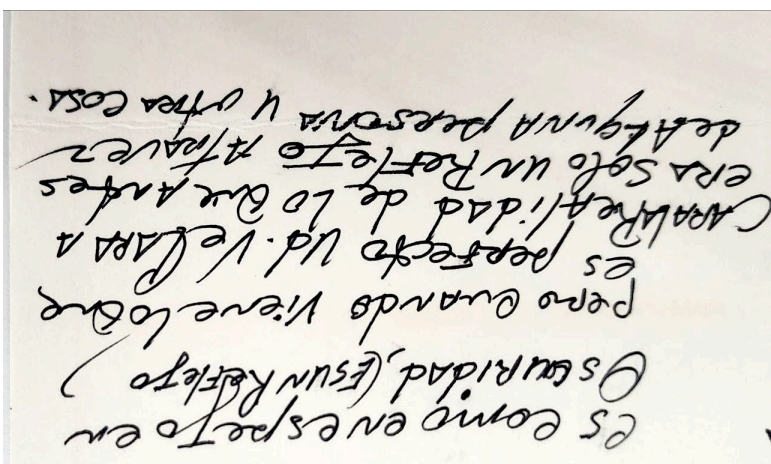 es como en espeJo en
OscuRidad, (Es un Reflejo )
pero cuando viene lo Que
es perfecto Ud. Ve CARA A
CARA la ReAlidad de lo Que Antes
eRA Solo un Reflejo ATRAVez
de Alguna persona u otRA COSA.